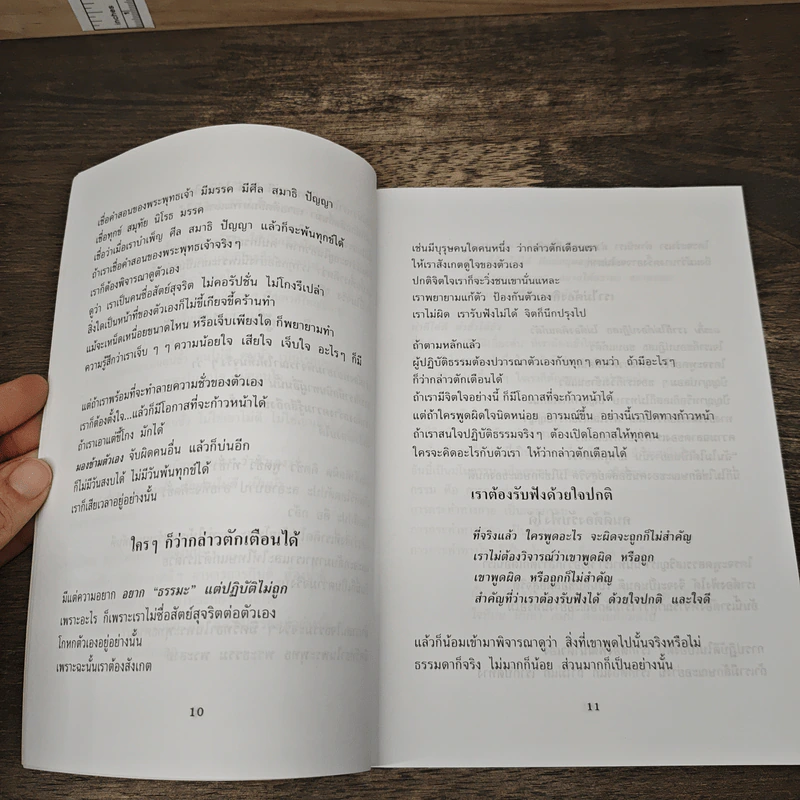 inches
เชื่อคำสอนของพระพุทธเจ้า มีมรรค มีศีล สมาธิ ปัญญา
เชื่อทุกข์ สมุทัย นิโรธ มรรค
เชื่อว่าเมื่อเราบำเพ็ญ ศีล สมาธิ ปัญญา แล้วก็จะพ้นทุกข์ได้
ถ้าเราเชื่อคำสอนของพระพุทธเจ้าจริงๆ
เราก็ต้องพิจารณาดูตัวเอง
ดูว่า เราเป็นคนซื่อสัตย์สุจริต ไม่คอรัปชั่น ไม่โกงรึเปล่า
สิ่งใดเป็นหน้าที่ของตัวเองก็ไม่ขี้เกียจขี้คร้านทำ
แม้จะเหน็ดเหนื่อยขนาดไหน หรือเจ็บเพียงใด ก็พยายามทำ
ความรู้สึกว่าเราเจ็บ ๆ ๆ ความน้อยใจ เสียใจ เจ็บใจ อะไรๆ ก็มี
แต่ถ้าเราพร้อมที่จะทำลายความชั่วของตัวเอง
เราก็ต้องตั้งใจ...แล้วก็มีโอกาสที่จะก้าวหน้าได้
ถ้าเราเอาแต่ขี้โกง มักได้
มองข้ามตัวเอง จับผิดคนอื่น แล้วก็บ่นอีก
ก็ไม่มีวันสงบได้ ไม่มีวันพ้นทุกข์ได้
เราก็เสียเวลาอยู่อย่างนั้น
ใครๆ ก็ว่ากล่าวตักเตือนได้
มีแต่ความอยาก อยาก “ธรรมะ” แต่ปฏิบัติไม่ถูก
เพราะอะไร ก็เพราะเราไม่ซื่อสัตย์สุจริตต่อตัวเอง
โกหกตัวเองอยู่อย่างนั้น
เพราะฉะนั้นเราต้องสังเกต
10
เช่นมีบุรุษคนใดคนหนึ่ง ว่ากล่าวตักเตือนเรา
ให้เราสังเกตดูใจของตัวเอง
ปกติจิตใจเราก็จะวิ่งชนเขานั่นแหละ
เราพยายามแก้ตัว ป้องกันตัวเอง
เราไม่ผิด เรารับฟังไม่ได้ จิตก็นึกปรุงไป
ถ้าตามหลักแล้ว
ผู้ปฏิบัติธรรมต้องปวารณาตัวเองกับทุกๆ คนว่า ถ้ามีอะไรๆ
ก็ว่ากล่าวตักเตือนได้
ถ้าเรามีจิตใจอย่างนี้ ก็มีโอกาสที่จะก้าวหน้าได้
แต่ถ้าใครพูดผิดใจนิดหน่อย อารมณ์ขึ้น อย่างนี้เราปิดทางก้าวหน้า
ถ้าเราสนใจปฏิบัติธรรมจริงๆ ต้องเปิดโอกาสให้ทุกคน
ใครจะคิดอะไรกับตัวเรา ให้ว่ากล่าวตักเตือนได้
เราต้องรับฟังด้วยใจปกติ
ที่จริงแล้ว ใครพูดอะไร จะผิดจะถูกก็ไม่สำคัญ
เราไม่ต้องวิจารณ์ว่าเขาพูดผิด หรือถูก
เขาพูดผิด หรือถูกก็ไม่สำคัญ
สำคัญที่ว่าเราต้องรับฟังได้ ด้วยใจปกติ และใจดี
แล้วก็น้อมเข้ามาพิจารณาดูว่า สิ่งที่เขาพูดไปนั้นจริงหรือไม่
ธรรมดาก็จริง ไม่มากก็น้อย ส่วนมากก็เป็นอย่างนั้น
11